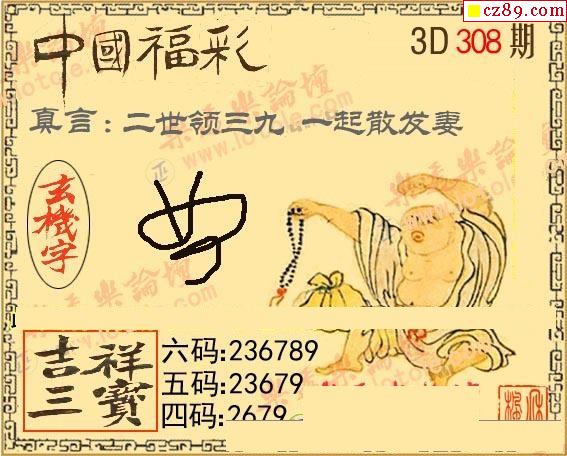 cz89.com
中國福彩
3D 308 期
真言:二世领三九 一起散发妻
玄機字
吉祥三寶
六码:236789
五码:23679
四码:2679